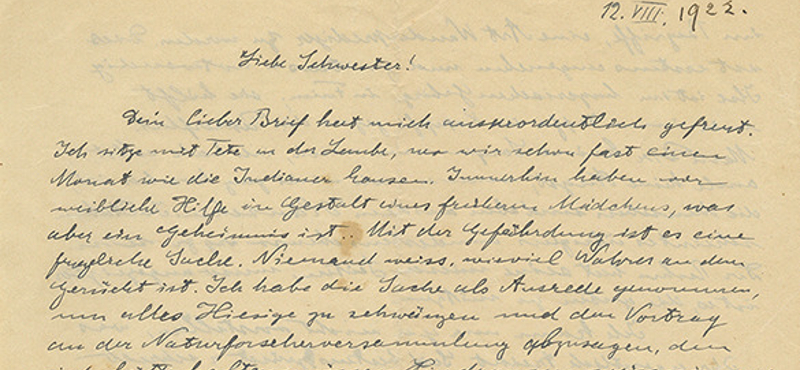 12. VIII. 1922.
Liebe Schwester!
Dein lieber Brief hat mich ausserordentlich gefreut.
Ich sitze mit Tete in der Laube, wo wir schon fast einen
Monat wie die Indianer hausen. Immerhin haben wir
weibliche Hilfe in Gestalt eines früheren Mädchens, was
aber ein Geheimnis ist.. Mit der Gefährdung ist es eine
fragliche Sache. Niemand weiss, wieviel Wahres an dem
Gerücht ist. Ich habe die Sache als Ausrede genommen,
um alles Hiesige zu schwänzen und den Vortrag
an der Naturforscherversammlung abzusagen, den